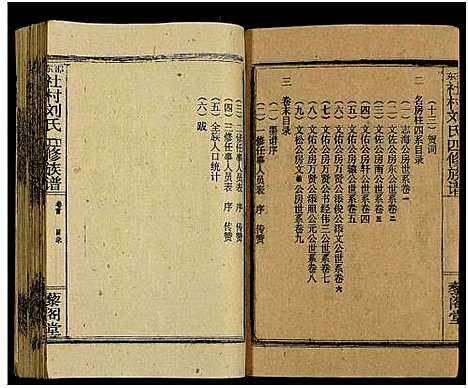 东社村刘氏四修族谱
藜阁堂
(十三) 贺词
二 名房柱四系目录
(一) 志海公房世系卷一
(二) 文佐公房东公世系卷二
(三) 文佐公房南公世系卷三
(四) 文佑公房轩公世系卷四
(五) 文佑公房辕公世系卷五
(六) 文佑公房万贤公添俊公添文公世系卷六
(七) 文佑公房万贤公书经伟三公世系卷七
(八) 文佑公房万贤公添照公元公世系卷八
(九) 文松公房文公房世系卷九
三 卷末目录
(一) 墨谱序
(二) 一修任事人员表 序 传赞
(三) 二修任事人员表 序 传赞
(四) 三修任事人员表 序 传赞
(五) 全族人口统计
(六) 跋
社村刘氏四修族谱
卷首 目录
藜阁堂